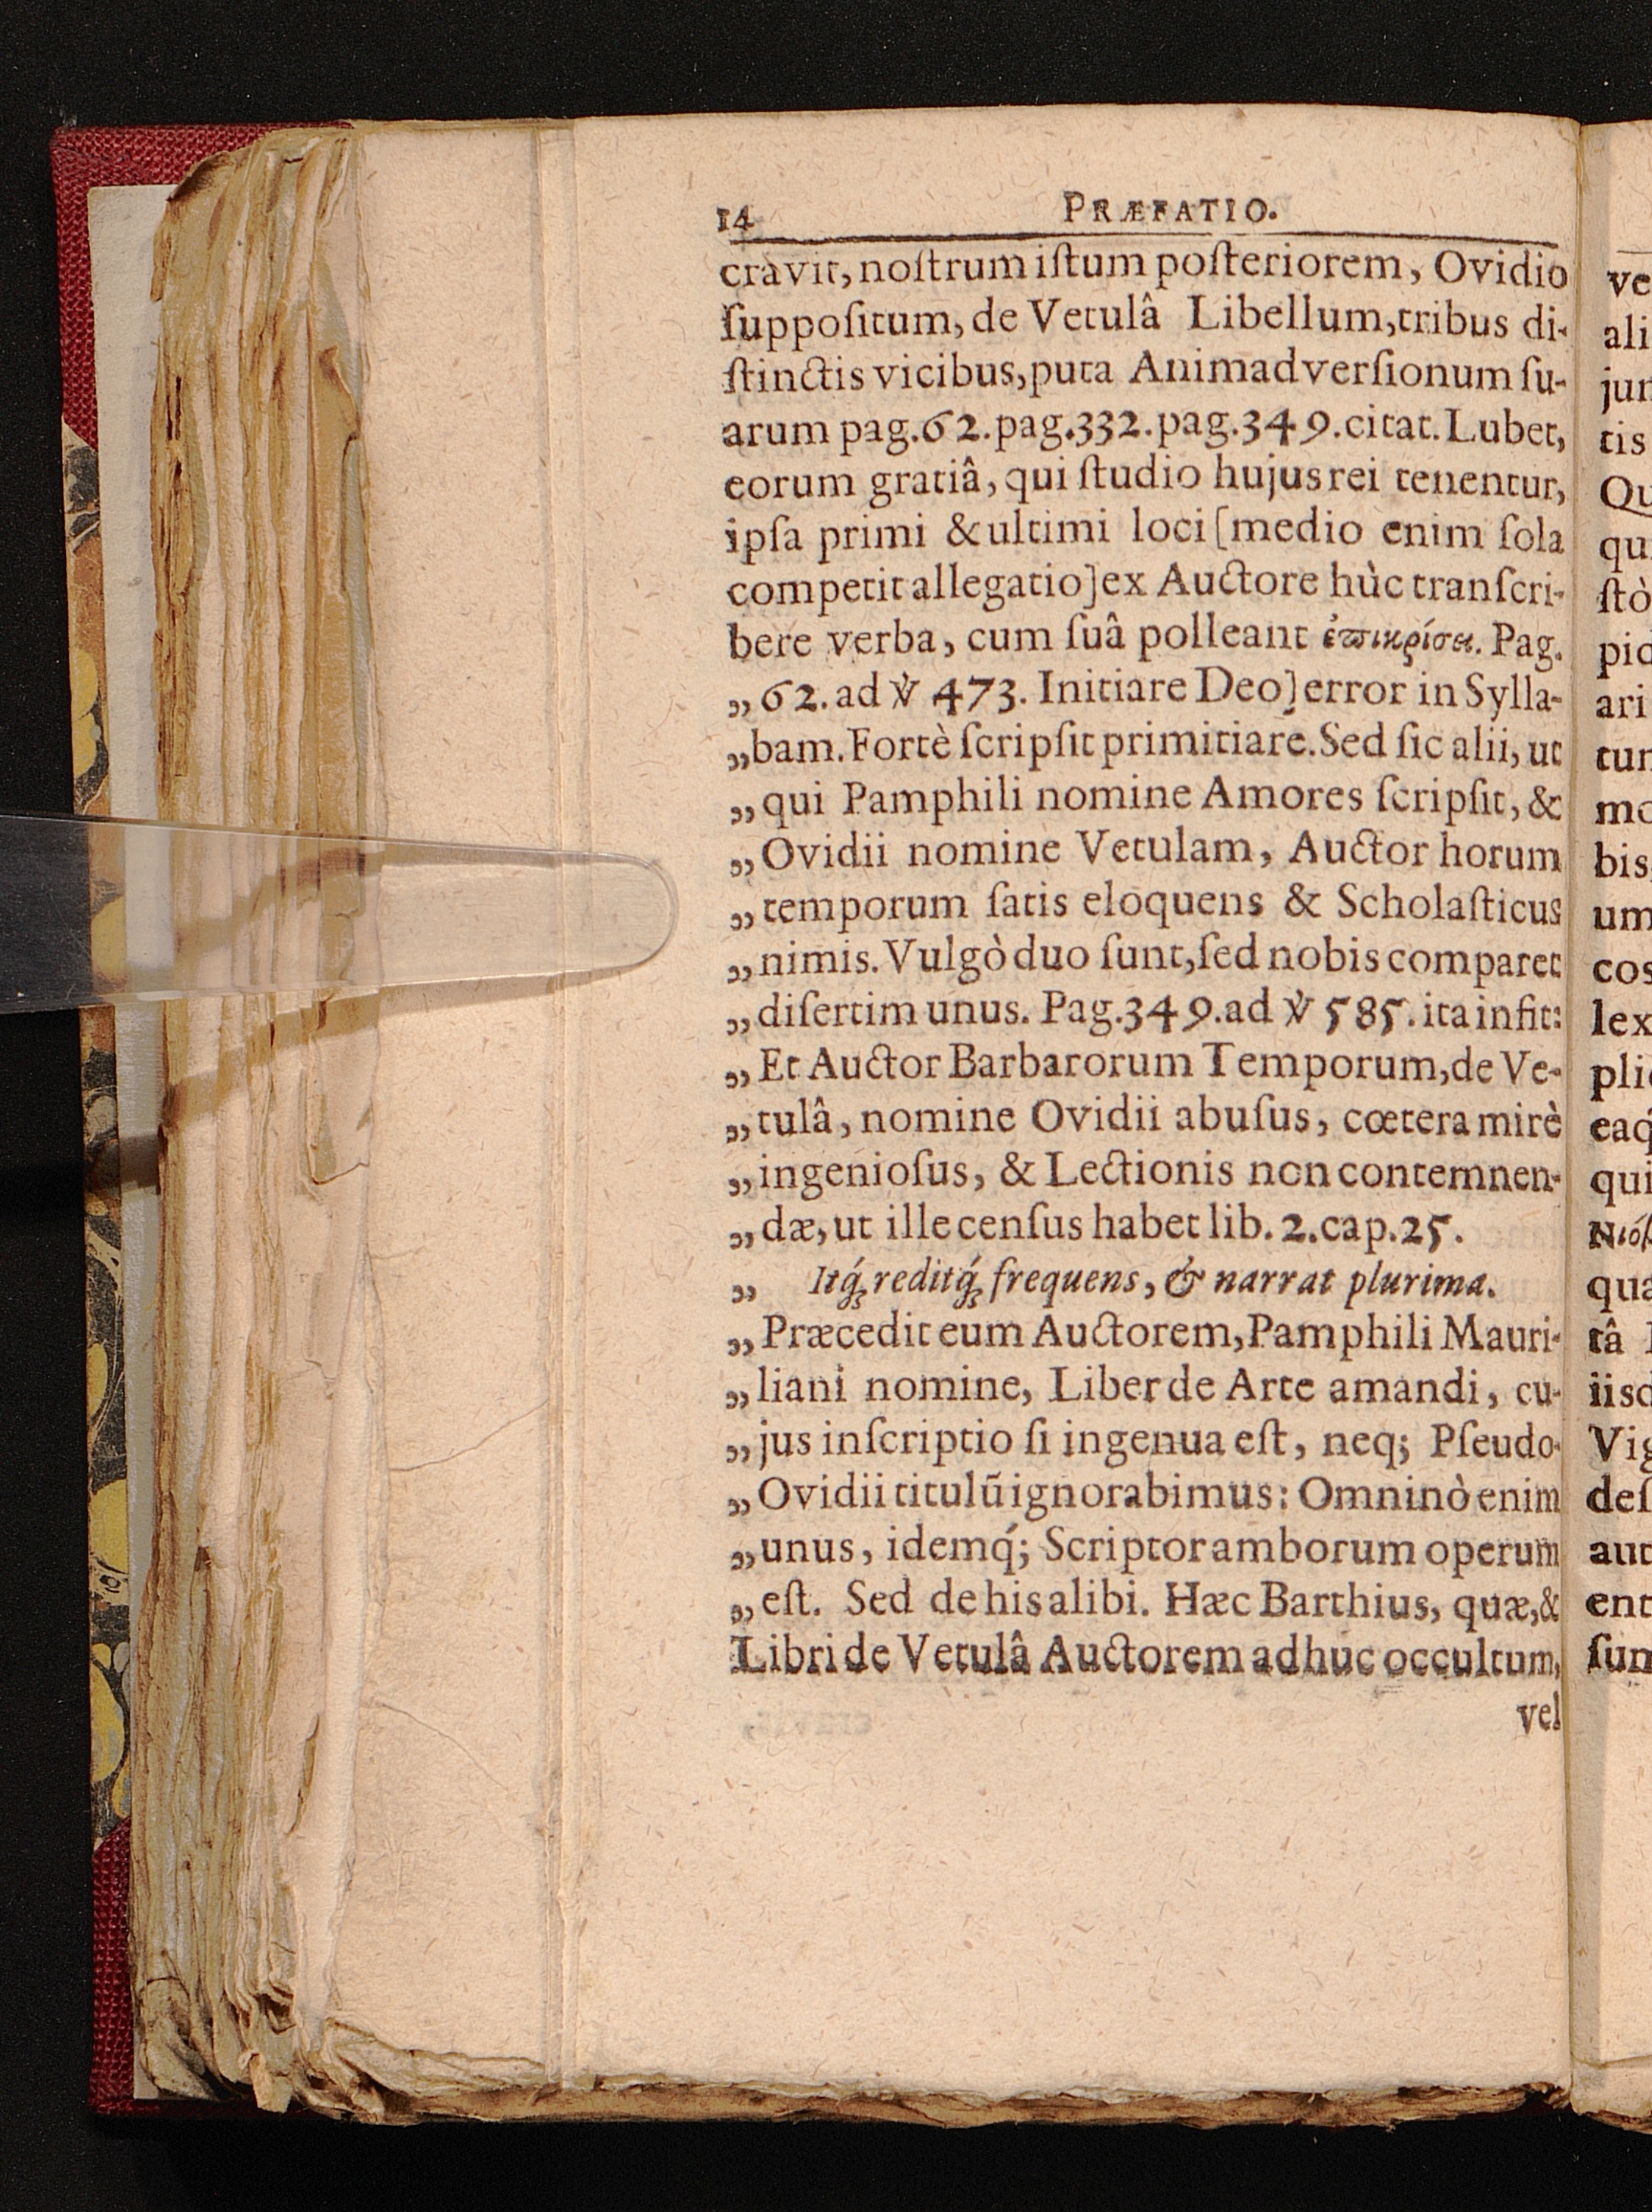 14 PRÆFATIO.
cravit, noſtrum iſtum poſteriorem, Ovidio
ſuppoſitum, de Vetulâ Libellum, tribus di-
ſtinctis vicibus, puta Animadverſionum ſu-
arum pag. 62. pag. 332. pag. 349. citat. Lubet,
eorum gratiâ, qui ſtudio hujus rei tenentur,
ipſa primi & ultimi loci [medio enim ſola
competit allegatio] ex Auctore hùc tranſcri-
bere verba, cum ſuâ polleant ἐπικρίσει. Pag.
„ 62. ad ℣ 473. Initiare Deo] error in Sylla-
„ bam. Fortè ſcripſit primitiare. Sed ſic alii, ut
„ qui Pamphili nomine Amores ſcripſit, &
„ Ovidii nomine Vetulam, Auctor horum
„ temporum ſatis eloquens & Scholaſticus
„ nimis. Vulgò duo ſunt, ſed nobis comparet
„ diſertim unus. Pag. 349. ad ℣ 585. ita infit:
„ Et Auctor Barbarorum Temporum, de Ve-
„ tulâ, nomine Ovidii abuſus, cœtera mirè
„ ingenioſus, & Lectionis non contemnen-
„ dæ, ut ille cenſus habet lib. 2. cap. 25.
„ Itq́; reditq́; frequens, & narrat plurima.
„ Præcedit eum Auctorem, Pamphili Mauri-
„ liani nomine, Liber de Arte amandi, cu-
„ jus inſcriptio ſi ingenua eſt, neq; Pſeudo-
„ Ovidii titulũ ignorabimus: Omninò enim
„ unus, idemq́; Scriptor amborum operum
„ eſt. Sed de his alibi. Hæc Barthius, quæ, &
Libri de Vetulâ Auctorem adhuc occultum,
vel
ve
ali
jun
tis
Qu
qui
ſtò
pio
ari
tur
mo
bis
um
cos
lex
plic
eaq́
qui
qua
tâ
iisd
Vig
deſ
aut
ent
ſun